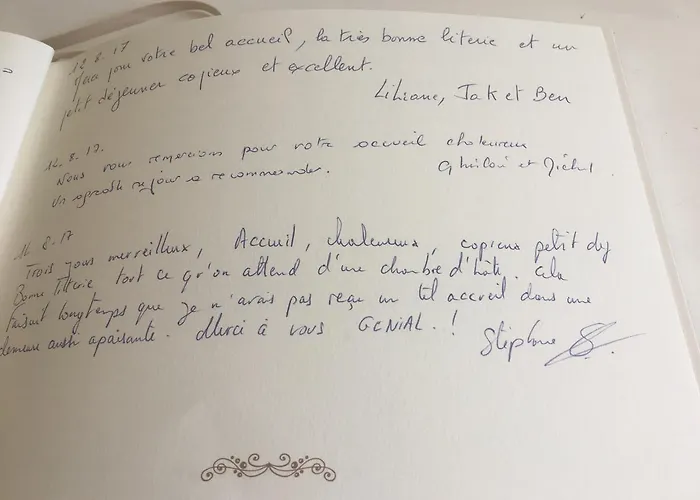 12.8.17
pour votre bel accueil, la très bonne literie et un
petit déjeuner copieux et excellent.
Liliane, Jak et Ben
12.8.17.
Nous vous remercions pour votre accueil chaleureux
un agréable séjour a recommander.
et Michel.
16.8.17
Trois jours merveilleux, Accueil, chaleureux, copieux petit dej
Bonne litterie tout ce qu'on attend d'une chambre d'hôte. Cela
faisait longtemps que je n'avais pas reçu un tel accueil dans une
demeure aussi apaisante. Merci à vous GENIAL. !
Stéphane